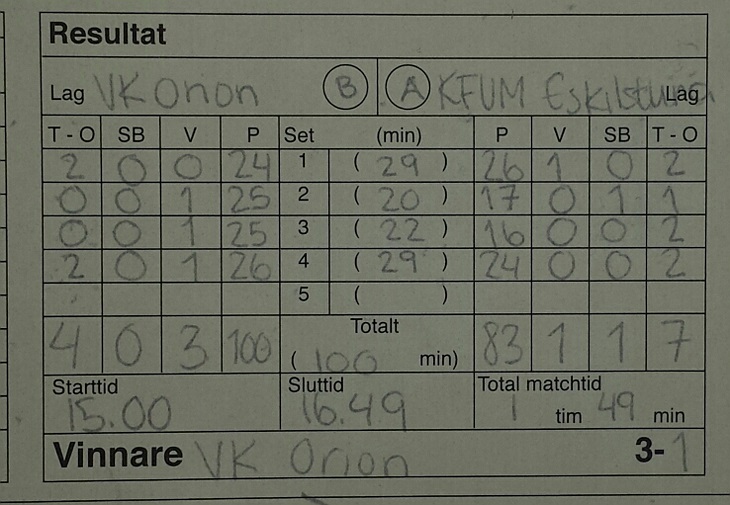 Resultat
Lag VK Orion B A KFUM Eskilstuna Lag
T - O SB V P Set (min) P V SB T - O
2 0 0 24 1 ( 29 ) 26 1 0 2
0 0 1 25 2 ( 20 ) 17 0 1 1
0 0 1 25 3 ( 22 ) 16 0 0 2
2 0 1 26 4 ( 29 ) 24 0 0 2
5 ( )
Totalt
4 0 3 100 ( 100 min) 83 1 1 7
Starttid Sluttid Total matchtid
15.00 16.49 1 tim 49 min
Vinnare VK Orion 3-1